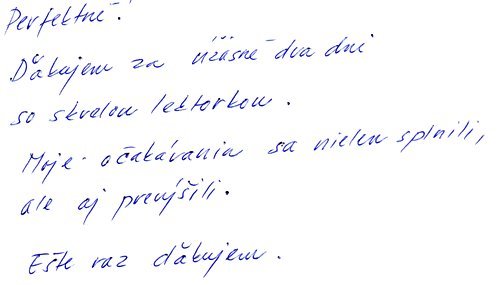 Perfektné!
Ďakujem za úžasné dva dni
so skvelou lektorkou.
Moje očakávania sa nielen splnili,
ale aj prevýšili.
Ešte raz ďakujem.